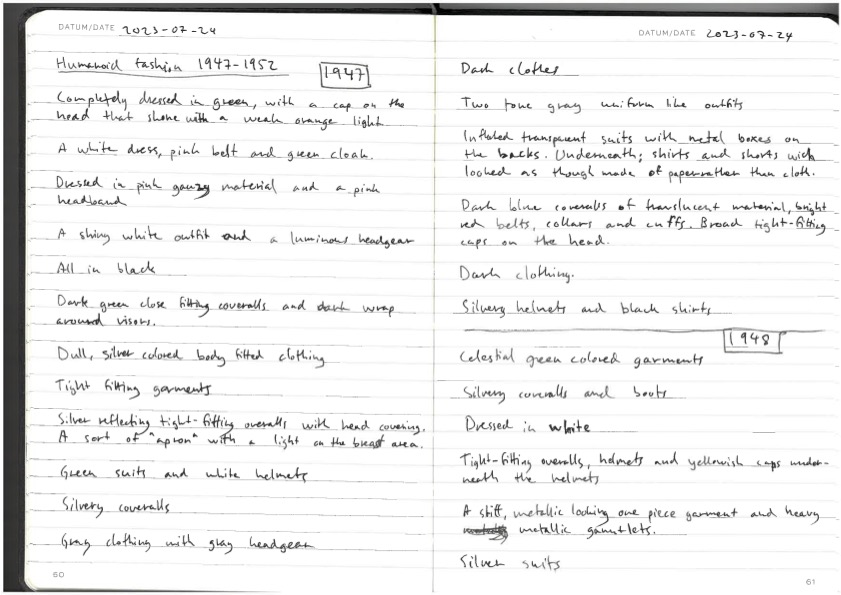 DATUM/DATE 2023-07-24
Humanoid fashion 1947-1952
1947
Completely dressed in green, with a cap on the
head that shone with a weak orange light
A white dress, pink belt and green cloak.
Dressed in pink gauzy material and a pink
headband
A shiny white outfit and a luminous headgear
All in black
Dark green close fitting coveralls and dark wrap
around visors.
Dull, silver colored body fitted clothing
Tight fitting garments
Silver reflecting tight-fitting overalls with head covering.
A sort of "apron" with a light on the breast area.
Green suits and white helmets
Silvery coveralls
Gray clothing with gray headgear
60
DATUM/DATE 2023-07-24
Dark clothes
Two tone gray uniform like outfits
Inflated transparent suits with metal boxes on
the backs. Underneath; shirts and shorts wich
looked as though made of paper rather than cloth.
Dark blue coveralls of translucent material, bright
red belts, collars and cuffs. Broad tight-fitting
caps on the head.
Dark clothing.
Silvery helmets and black shirts
1948
Celestial green colored garments
Silvery coveralls and boots
Dressed in white
Tight-fitting overalls, helmets and yellowish caps under-
neath the helmets
A stiff, metallic looking one piece garment and heavy
metallic gauntlets.
Silver suits
61